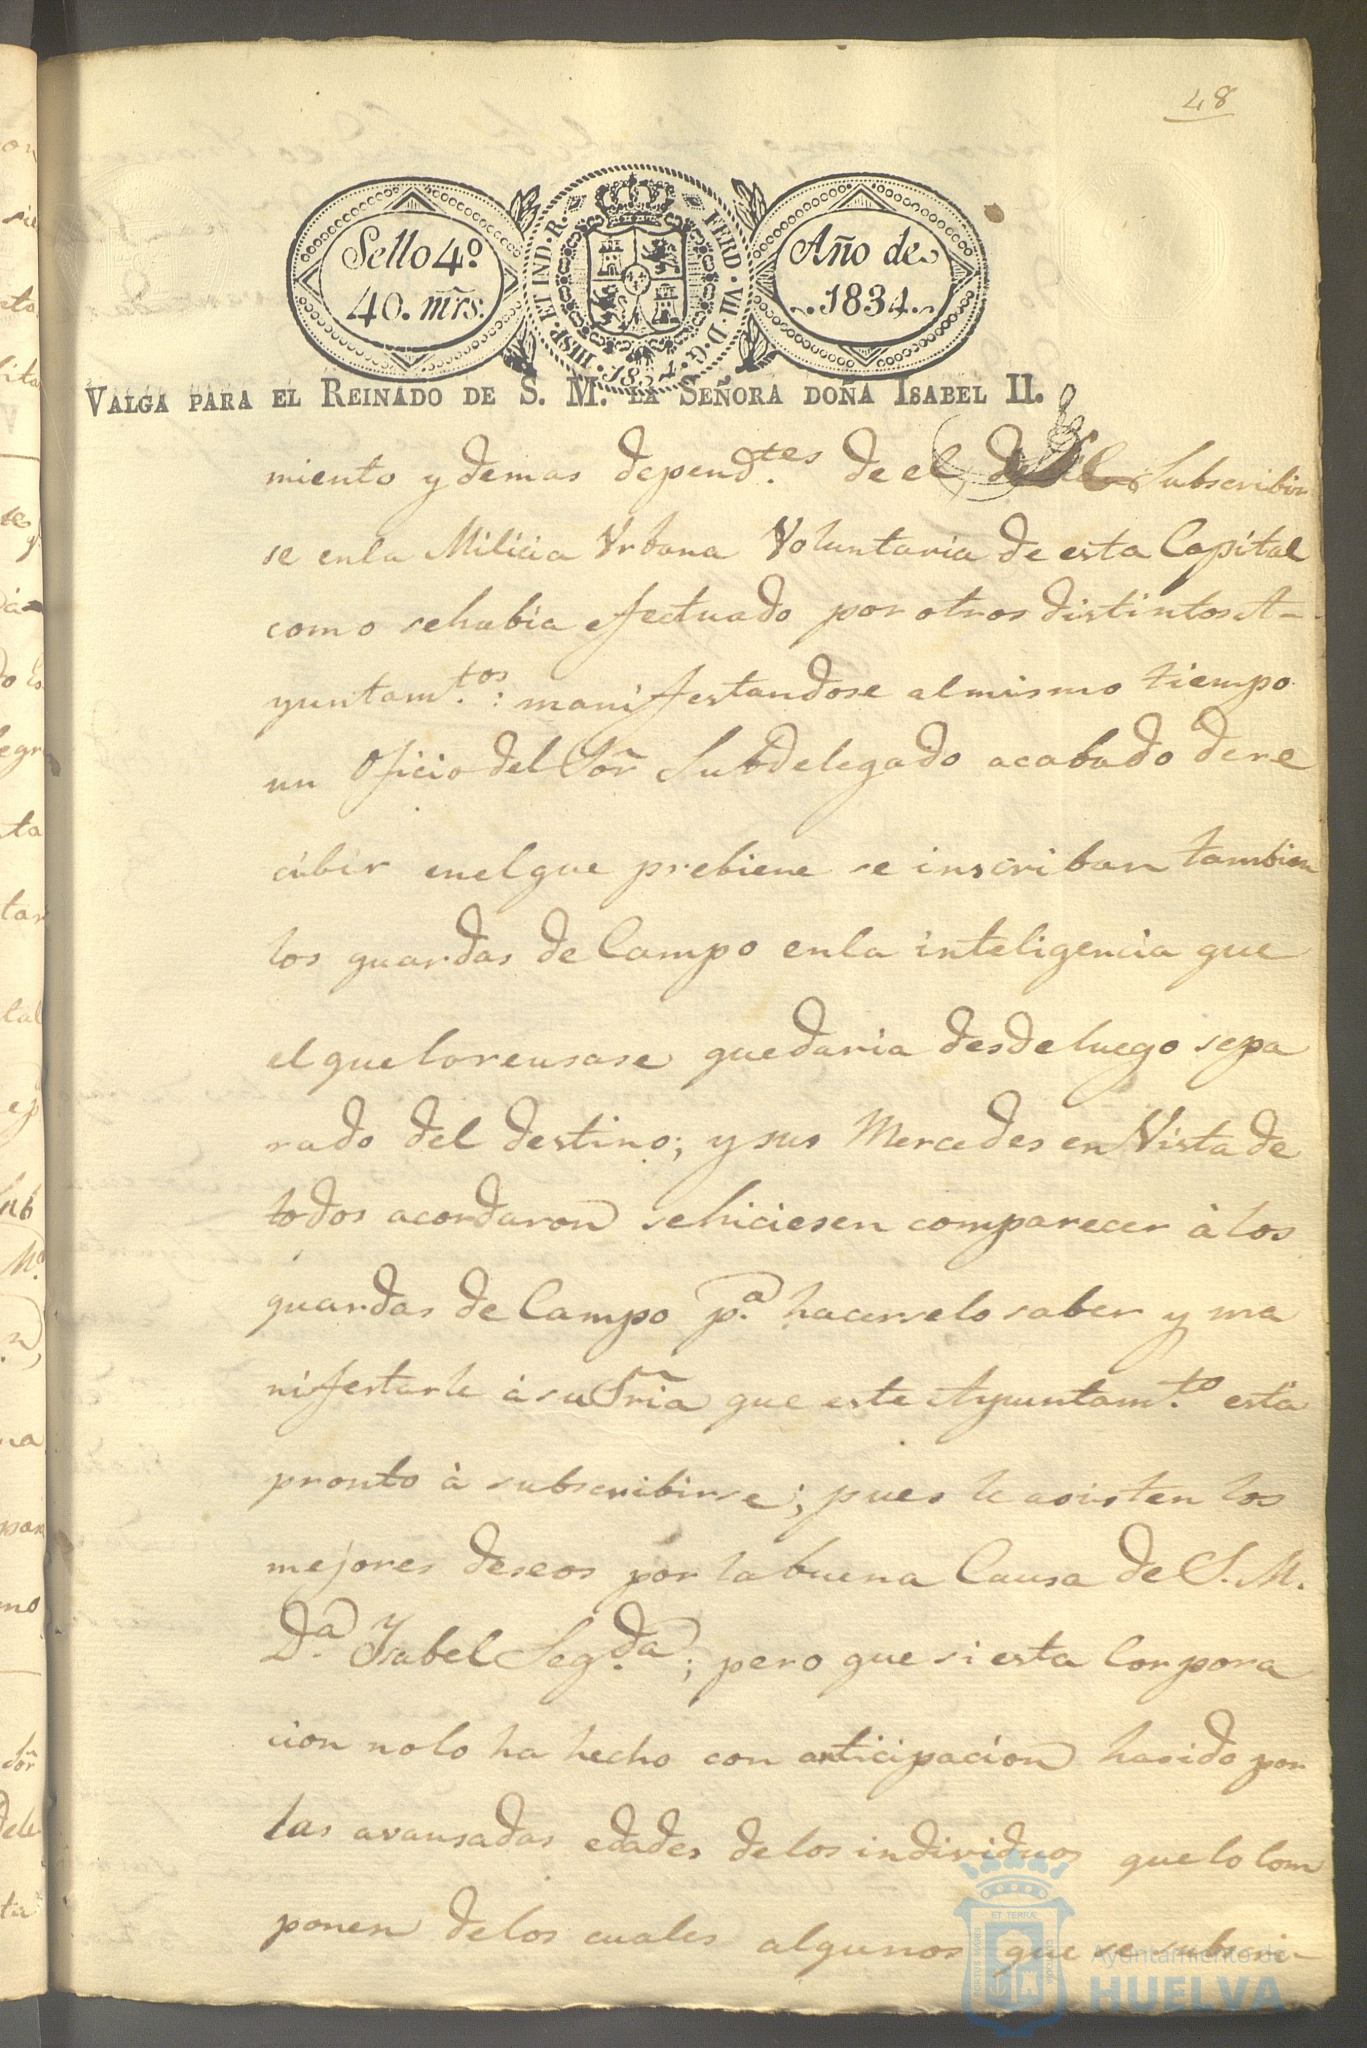 48
Sello 4º
40. mrs.
HISP. ET IND. R. FERD. VII. D. G. 1834
Año de
1834.
VALGA PARA EL REINADO DE S. M. LA SEÑORA DOÑA ISABEL II.
miento y demas depend.tes de el, Subscribir
se enla Milicia Vrbana Voluntaria de esta Capital
como sehabia efectuado por otros distintos A-
yuntam.tos: manifestandose almismo tiempo
un Oficio del Sor Subdelegado acabado de re
cibir enelque prebiene se inscriban tambien
los guardas de Campo enla inteligencia que
el que lo reusase quedaria desde luego sepa
rado del destino; y sus Mercedes en Vista de
todos acordaron sehiciesen comparecer à los
guardas de Campo p.a hacerselo saber y ma
nifestarle à su Sria que este Ayuntam.to està
pronto à subscribirse; pues le asisten los
mejores deseos por la buena Causa de S. M.
D.a Ysabel Seg.da; pero que si esta Corpora
cion nolo ha hecho con anticipacion hasido por
las avansadas edades de los individuos que lo Com
ponen de los cuales algunos que se subscri-
Ayuntamiento de
HUELVA